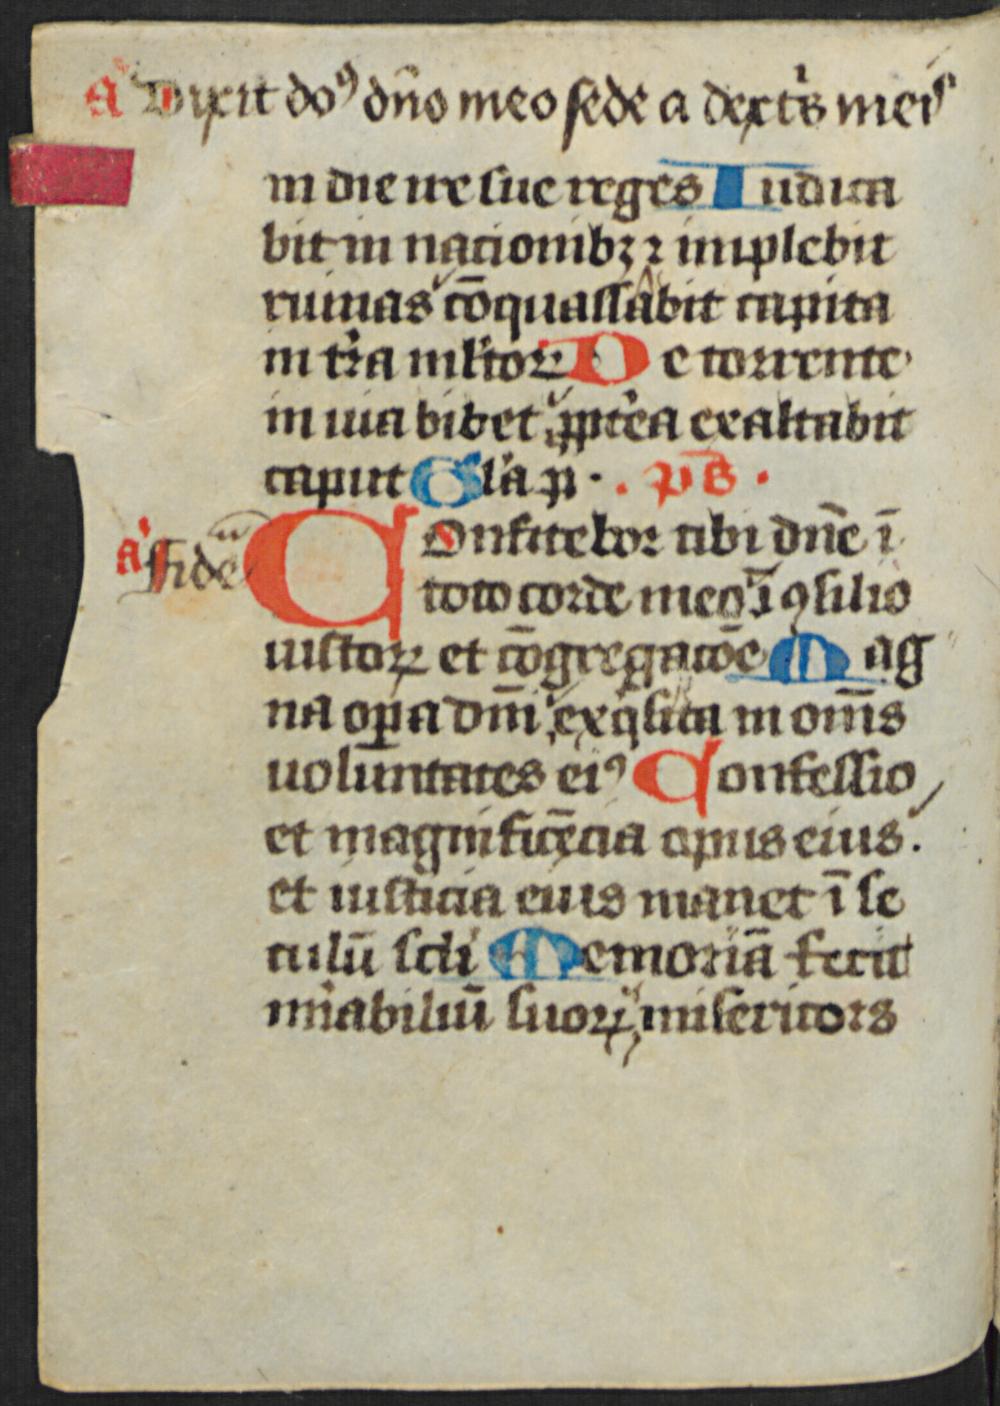 a Dixit doꝰ dn̄o meo sede a dextˀs meiˢ
in die ire sue reges Iudica
bit in nacionibꝫ ⁊ implebit
ruinas ꝯ̄quassabit capita
in tˀra mltoꝝ De torrente
in uia bibet ꝓptˀea exaltabit
caput Gl'a p̄ · . ps̄ .
a fideͣ
Onfitebor tibi dn̄e ī
toto corde meo ī ꝯsilio
iustoꝝ et cōgregacōe Mag
na oꝑa dn̄i exq̇sita in om̄s
uoluntates eiꝰ Confessio
et magnificēcia opus eius .
et iusticia eius manet ī se
culū scl'i Memoriā fecit
mˀabiliū suoꝝ misericors